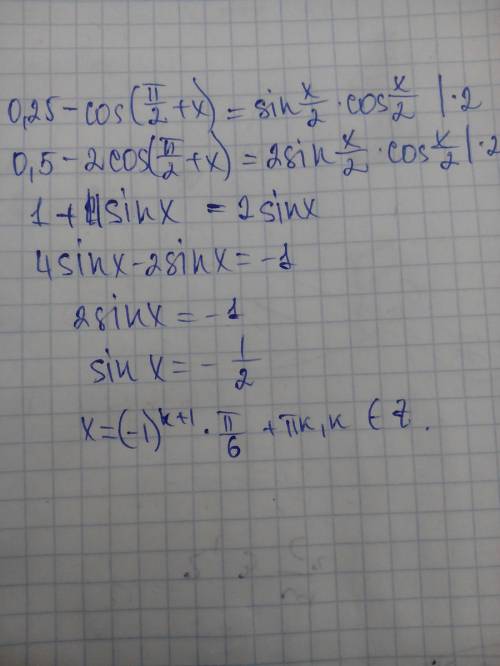 0,25 - cos(π/2 + x) = sin x/2 · cos x/2 | · 2
0,5 - 2cos(π/2 + x) = 2sin x/2 · cos x/2 | · 2
1 + 4sinx = 2sinx
4sinx - 2sinx = -1
2sinx = -1
sin x = - 1/2
x = (-1)^{k+1} · π/6 + πk, k ∈ Z.